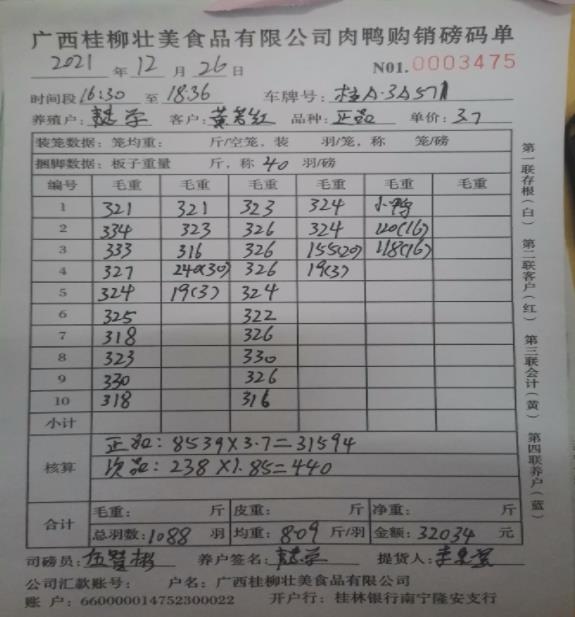 广西桂柳壮美食品有限公司肉鸭购销磅码单
2021 年 12 月 26 日 NO1. 0003475
时间段 16:30 至 18:36 车牌号: 桂A·3A571
养殖户: 客户: 品种: 正品 单价: 3.7
装笼数据: 笼均重: 斤/空笼, 装 羽/笼, 称 笼/磅
捆脚数据: 板子重量 斤, 称 40 羽/磅
编号 毛重 毛重 毛重 毛重 毛重 毛重
1 321 321 323 324 小鸭
2 334 323 326 324 120(16)
3 333 316 326 155(20) 118(16)
4 327 240(30) 326 19(3)
5 324 19(3) 324
6 325 322
7 318 326
8 323 330
9 330 326
10 318 316
小计
核算 正品: 8539×3.7=31594
次品: 238×1.85=440
合计 毛重: 斤 皮重: 斤 净重: 斤
总羽数: 1088 羽 均重: 8.09 斤/羽 金额: 32034 元
司磅员: 养户签名: 提货人:
公司汇款账号: 户名: 广西桂柳壮美食品有限公司
账 户: 660000014752300022 开户行: 桂林银行南宁隆安支行
第一联存根(白) 第二联客户(红) 第三联会计(黄) 第四联养户(蓝)